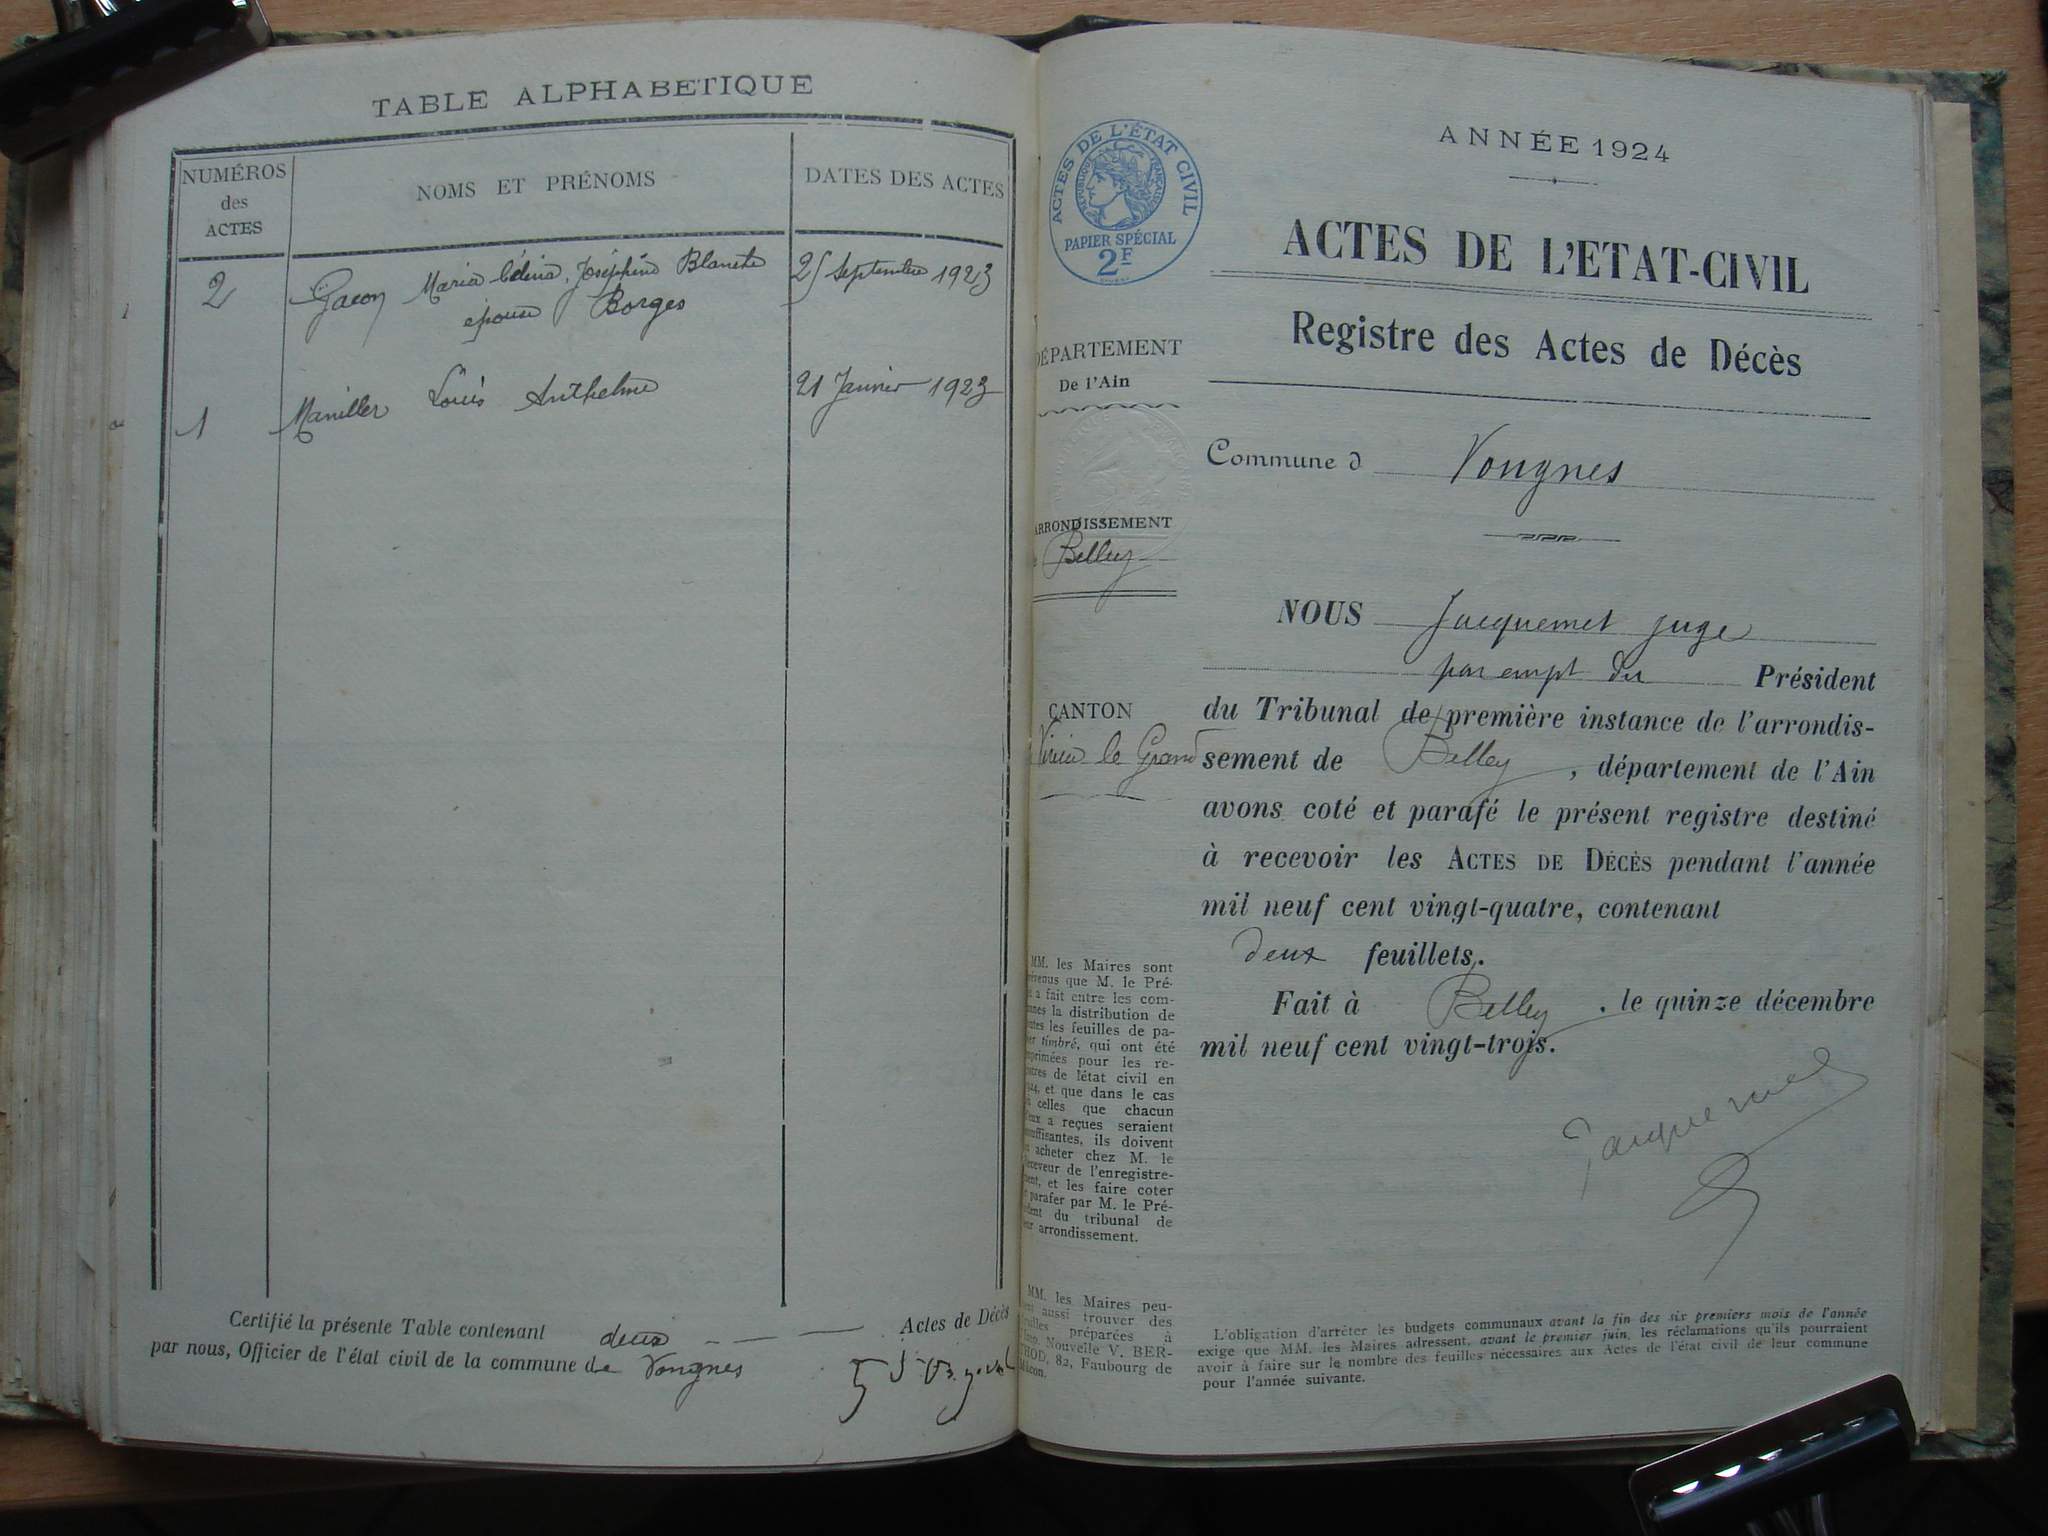 TABLE ALPHABETIQUE
NUMÉROS
des
ACTES
NOMS ET PRÉNOMS
DATES DES ACTES
2 Gacon Maria Célina, Joséphine Blanche 25 Septembre 1923
épouse Borges
1 Maniller Louis Anthelme 21 Janvier 1923
Certifié la présente Table contenant deux Actes de Décès
par nous, Officier de l'état civil de la commune de Vongnes
ACTES DE L'ÉTAT CIVIL
RÉPUBLIQUE FRANÇAISE
PAPIER SPÉCIAL
2F
DÉPARTEMENT
De l'Ain
ARRONDISSEMENT
Belley
CANTON
Virieu le Grand
MM. les Maires sont
prévenus que M. le Pré-
a fait entre les com-
munes la distribution de
toutes les feuilles de pa-
pier timbré, qui ont été
imprimées pour les re-
gistres de l'état civil en
1924, et que dans le cas
où celles que chacun
d'eux a reçues seraient
insuffisantes, ils doivent
en acheter chez M. le
Receveur de l'enregistre-
ment, et les faire coter
et parafer par M. le Pré-
sident du tribunal de
leur arrondissement.
MM. les Maires peu-
vent aussi trouver des
feuilles préparées à
l'Imp. Nouvelle V. BER-
THOD, 82, Faubourg de
Mâcon.
ANNÉE 1924
ACTES DE L'ETAT-CIVIL
Registre des Actes de Décès
Commune d Vongnes
NOUS Jacquemet juge
par empt du Président
du Tribunal de première instance de l'arrondis-
sement de Belley, département de l'Ain
avons coté et parafé le présent registre destiné
à recevoir les ACTES DE DÉCÈS pendant l'année
mil neuf cent vingt-quatre, contenant
deux feuillets.
Fait à Belley, le quinze décembre
mil neuf cent vingt-trois.
Jacquemet
L'obligation d'arrêter les budgets communaux avant la fin des six premiers mois de l'année
exige que MM. les Maires adressent, avant le premier juin, les réclamations qu'ils pourraient
avoir à faire sur le nombre des feuilles nécessaires aux Actes de l'état civil de leur commune
pour l'année suivante.